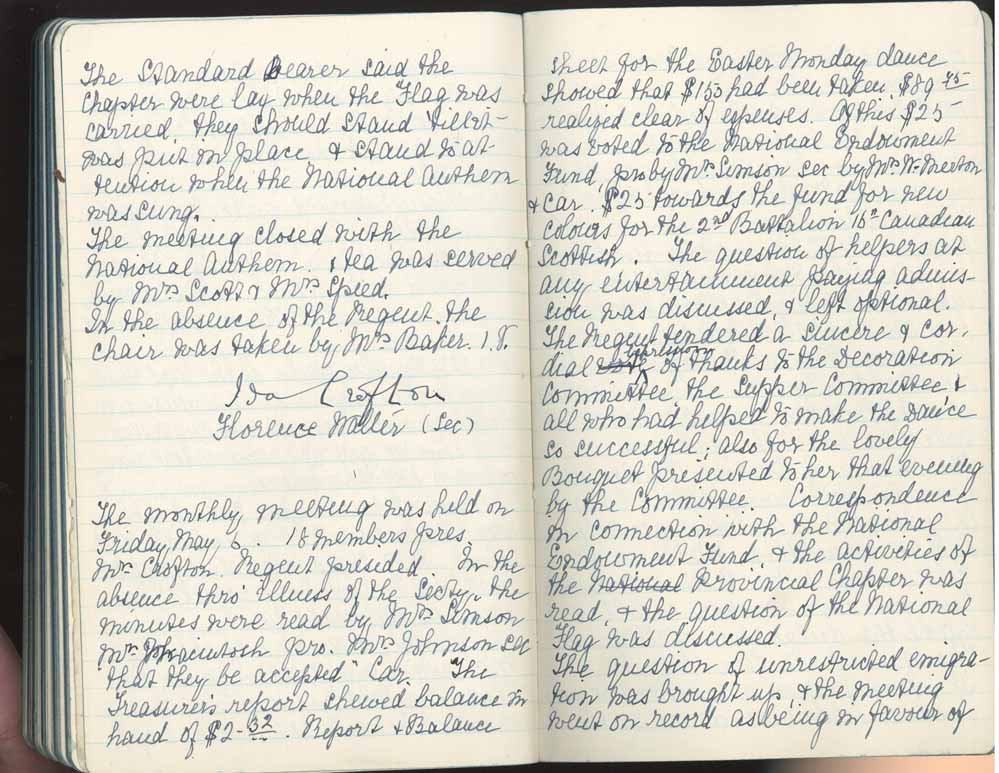 The Standard Bearer said the
Chapter were lay when the Flag was
carried. they should stand till it
was put in place & stand to at
tention when the National Anthem
was sung.
The meeting closed with the
National Anthem. & tea was served
by Mrs Scott & Mrs Speed.
In the absence of the Regent the
chair was taken by Mrs Baker. 1.V.
Ida Crofton
Florence Walter (Sec)
The monthly meeting was held on
Friday, May . 18 members pres.
Mrs Crofton. Regent presided. In the
absence thro' illness of the Secty. the
minutes were read by Mrs Simson
Mrs Mackintosh pro. Mrs Johnson sec
"that they be accepted" Car. The
Treasurer's report shewed balance in
hand of $2-32. Report & Balance
sheet for the Easter Monday dance
showed that $153 had been taken. $89 75
realized clear of expenses. Of this $25
was voted to the National Endowment
Fund, pro by Mrs Simson sec by Mrs W. Meeton
& Car. $25 towards the fund for new
colours for the 2nd Battalion 16th Canadian
Scottish. The question of helpers at
any entertainment paying admis-
sion was discussed, & left optional.
The Regent tendered a sincere & cor.
dial of thanks to the Decoration
Committee the Supper Committee &
all who had helped to make the dance
so successful; also for the lovely
Bouquet presented to her that evening
by the Committee. Correspondence
in connection with the National
Endowment Fund, & the activities of
the National Provincial Chapter was
read, & the question of the National
Flag was discussed.
The question of unrestricted emigra-
tion was brought up, & the meeting
went on record as being in favour of